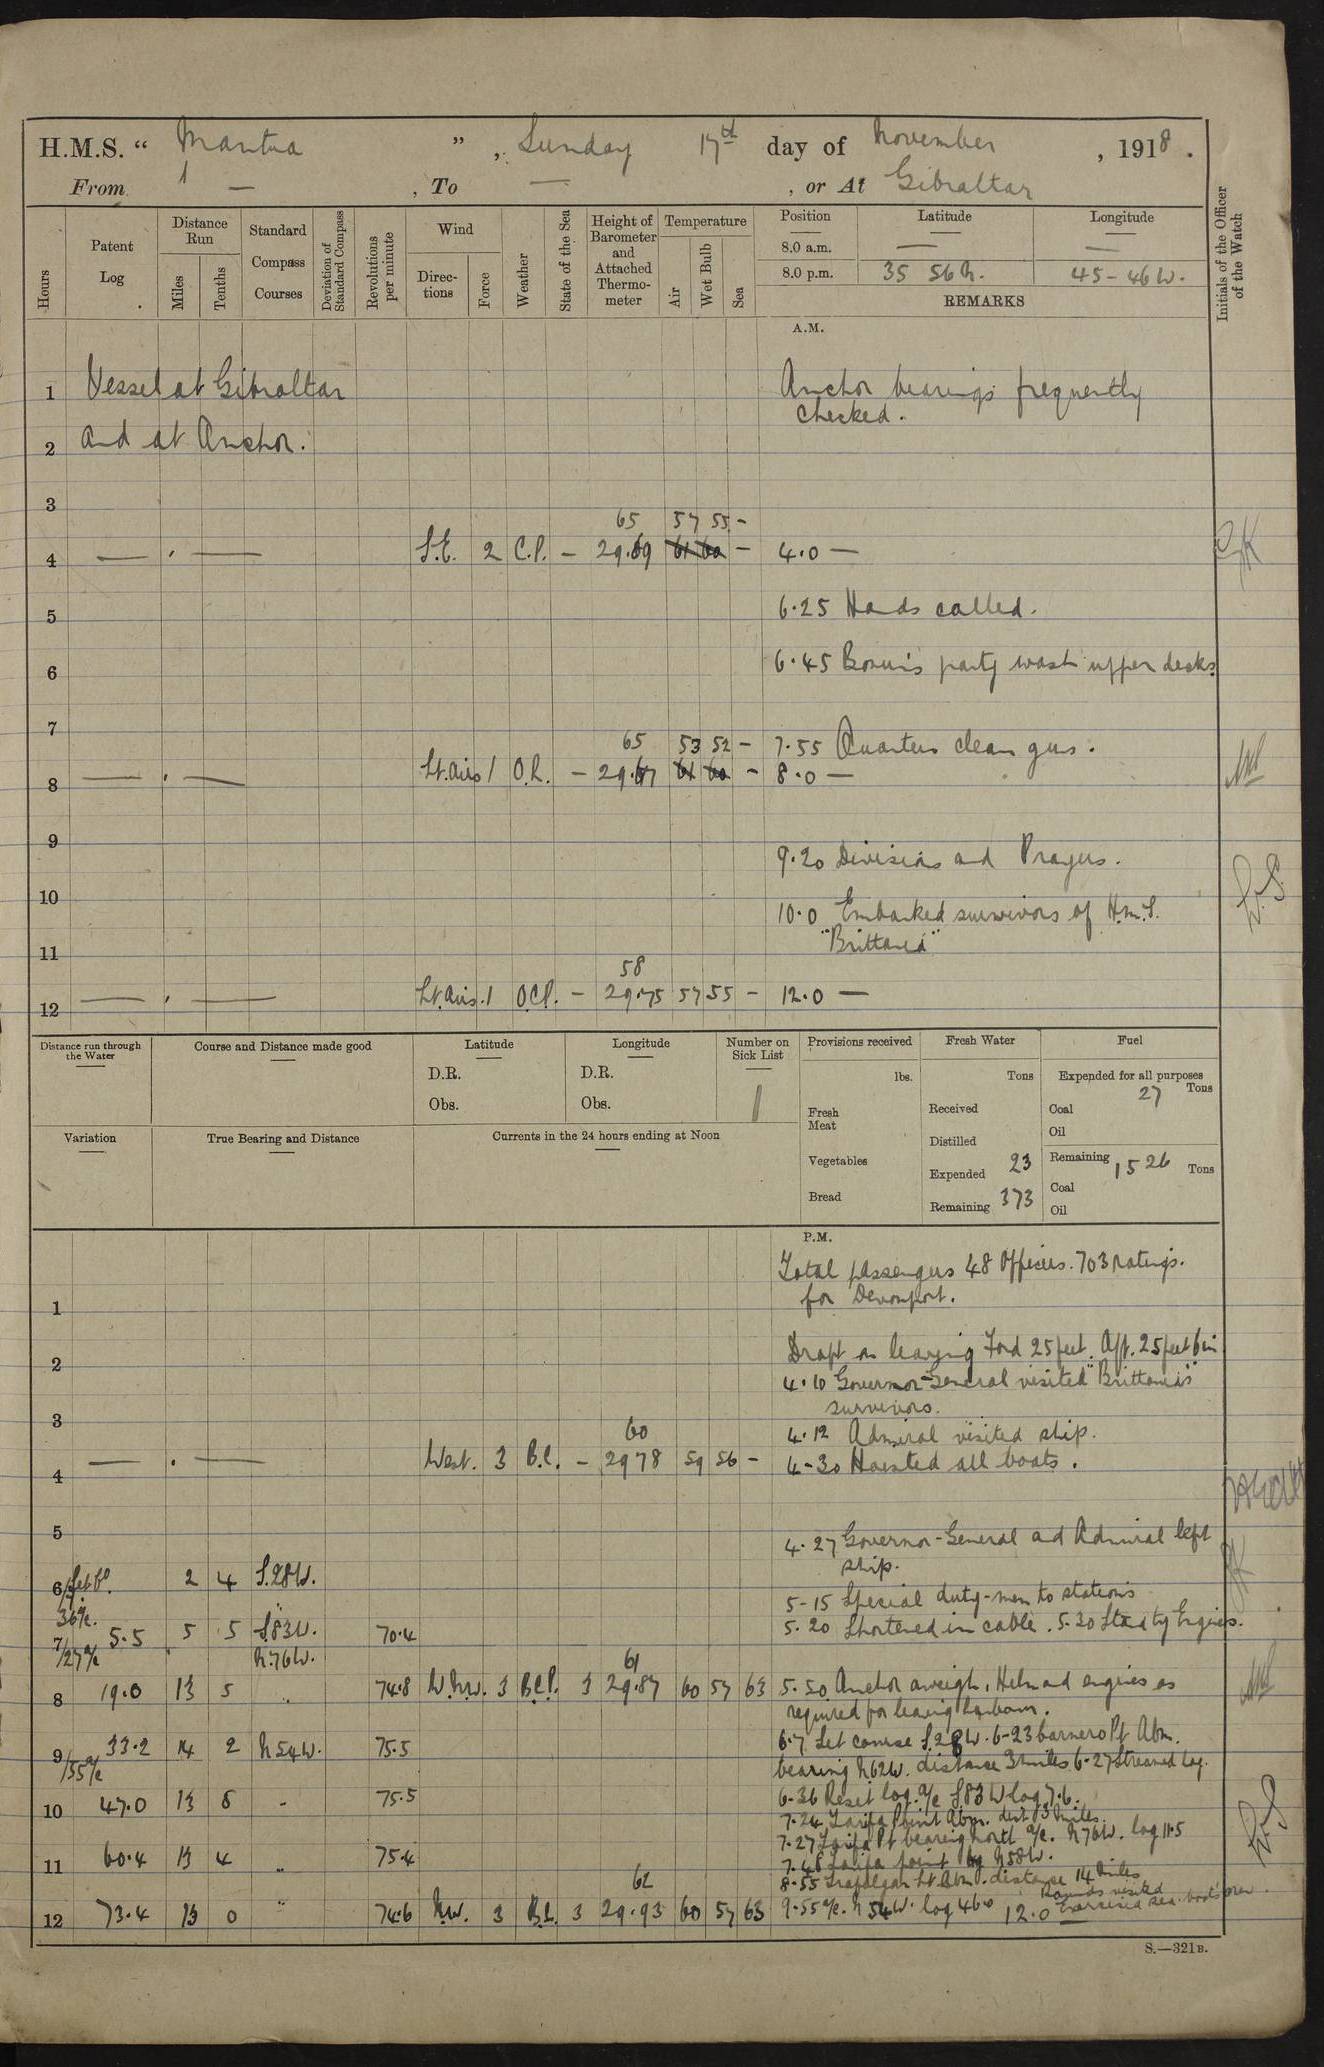 H.M.S. " Mantua " , Sunday 17th day of November , 1918 .
From — , To — , or At Gibraltar
Hours
Patent Log
Distance Run
Miles
Tenths
Standard Compass Courses
Deviation of Standard Compass
Revolutions per minute
Wind
Directions
Force
Weather
State of the Sea
Height of Barometer and Attached Thermometer
Temperature
Air
Wet Bulb
Sea
Position Latitude Longitude
8.0 a.m. — —
8.0 p.m. 35 56 N. 45-46 W.
REMARKS
Initials of the Officer of the Watch
A.M.
1 Vessel at Gibraltar Anchor bearings frequently
checked.
2 and at Anchor.
3
65 57 55 -
4 S.E. 2 C.P. - 29.69 61 60 - 4.0 —
5 6.25 Hands called.
6 6.45 Bosun's party wash upper decks.
7
65 53 52 - 7.55 Quarters clean guns.
8 Lt. airs 1 O.R. - 29.67 61 60 - 8.0 —
9 9.20 Divisions and Prayers.
10 10.0 Embarked survivors of H.M.S.
"Brittania"
11
58
12 Lt. airs. 1 O.C.P. - 29.75 57 55 - 12.0 —
Distance run through the Water
Course and Distance made good
Latitude
D.R.
Obs.
Longitude
D.R.
Obs.
Number on Sick List
1
Provisions received
lbs.
Fresh Meat
Vegetables
Bread
Fresh Water
Tons
Received
Distilled
Expended 23
Remaining 373
Fuel
Expended for all purposes
27 Tons
Coal
Oil
Remaining 1526 Tons
Coal
Oil
Variation
True Bearing and Distance
Currents in the 24 hours ending at Noon
P.M.
Total passengers 48 Officers. 703 ratings.
1 for Devonport.
Draft on leaving Ford 25 feet. Aft. 25 feet 6 in
2
4.10 Governor-General visited "Brittania's"
survivors.
3 60
4.12 Admiral visited ship.
West. 3 B.C. - 29 78 59 56 - 4-30 Hoisted all boats.
4
5 4.27 Governor-General and Admiral left
ship.
6 2 4 S.28W.
5-15 Special duty-men to stations
36 a/c.
7 5.5 5 5 S.83W. 70.4 5.20 Shortened in cable. 5.30 Stand by Engines.
/27 a/c N.76W.
61
8 19.0 13 5 " 74.8 W.N.W. 3 B.C.P. 3 29.87 60 57 63 5.50 Anchor aweigh. Helm and engines as
required for leaving harbour.
9 33.2 14 2 N54W. 75.5 6.7 Set course S.28W. 6-23 Carnero Pt Abm.
/55 a/c bearing N62W. distance 3 miles 6-27 Streamed log.
10 47.0 13 8 - 75.5 6-36 Reset log. a/c S.83W log 7.6.
7.24 Tarifa Point Abm. dist 3 miles.
7.27 Tarifa Pt bearing North a/c. N76W. log 11.5
11 60.4 13 4 " 75.4 7.48 Tarifa point N58W.
8.55 Trafalgar Lt Abm. distance 14 miles
62
12 73.4 13 0 " 74.6 N.W. 3 B.C. 3 29.93 60 57 63 9.55 a/c. N 54W. log 46.0 12.0 Rounds visited
Exercised sea boat's crew.
S.—321B.